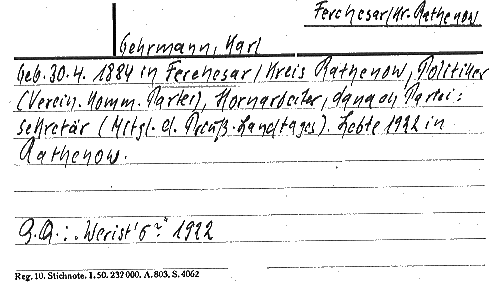 Ferchesar/Kr. Rathenow
Gehrmann, Karl
Geb. 30.4. 1884 in Ferchesar/Kreis Rathenow, Politiker
(Verein. Komm. Partei), Hornarbeiter, danach Partei:
sekretär (Mitgl. d. Preuß. Landtages). Lebte 1922 in
Rathenow.
Q.Q.: "Werist's?" 1922
Reg. 10. Stichnote. I. 50. 232 000. A. 803. S. 4062